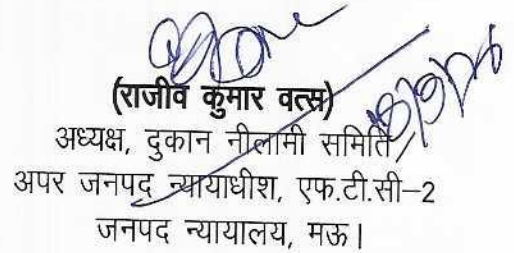 (राजीव कुमार वत्स)
अध्यक्ष, दुकान नीलामी समिति/
अपर जनपद न्यायाधीश, एफ.टी.सी-2
जनपद न्यायालय, मऊ।